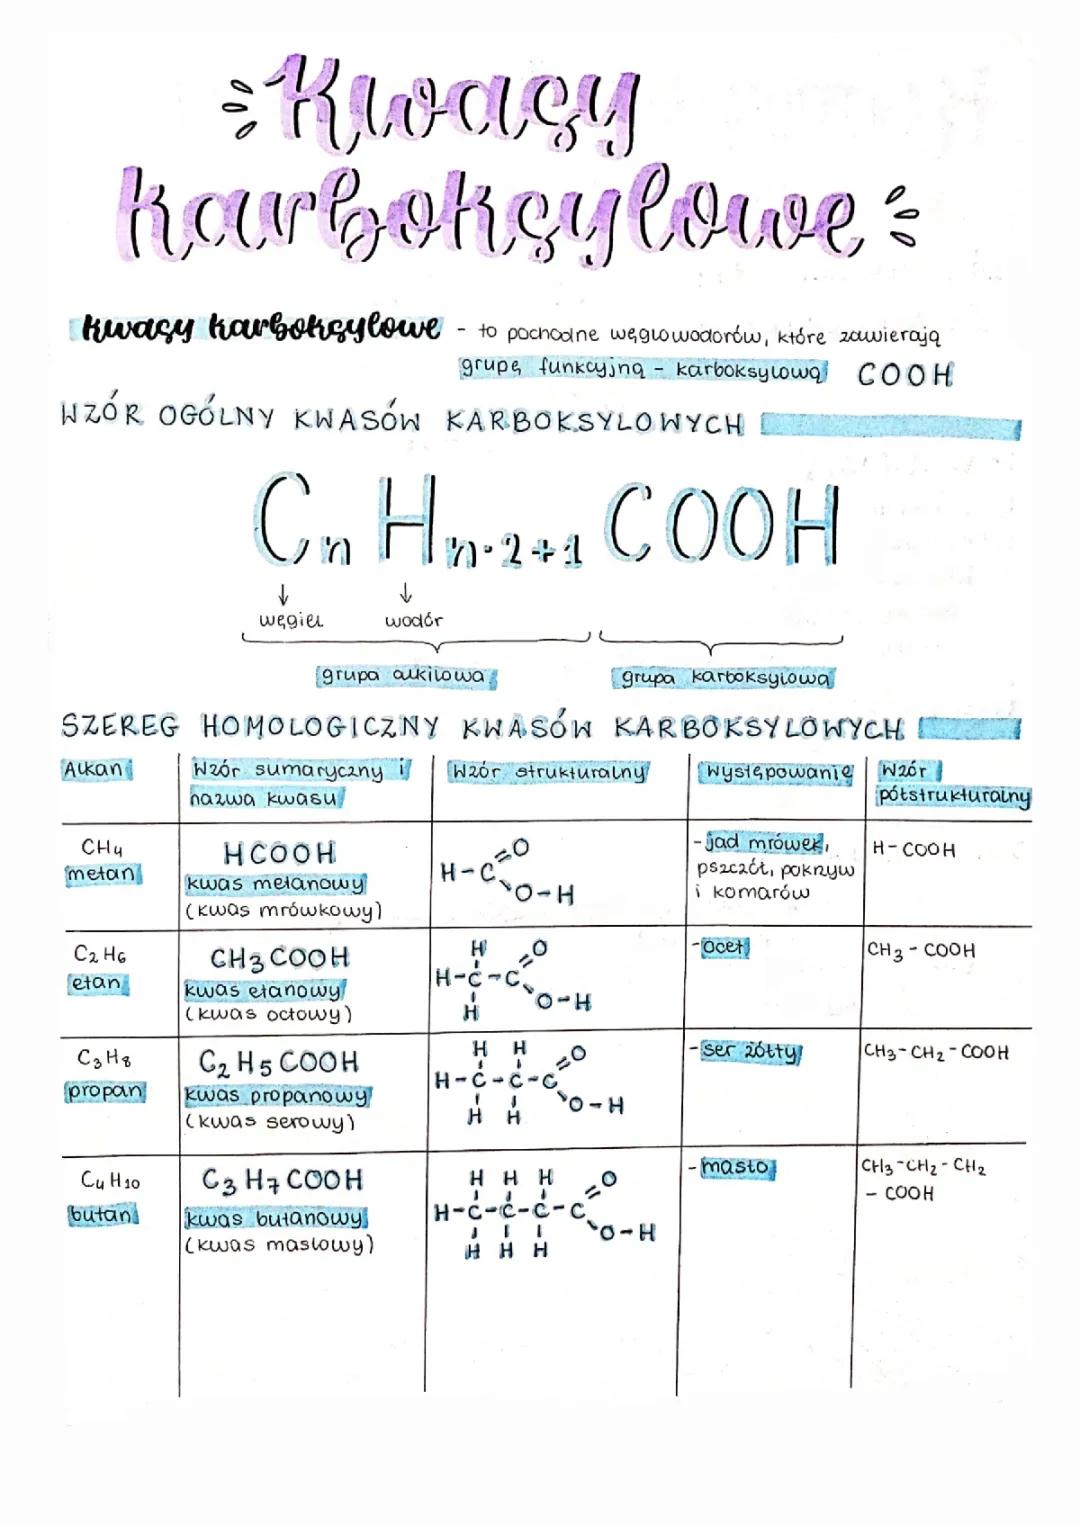 Kwasy
karboksylowe
kwasy karboksylowe - to pochodne węglowodorów, które zawierają
grupę funkcyjną - karboksylową COOH
WZÓR OGÓLNY KWASÓW KARBOKSYLOWYCH
Cn Hn·2+1 COOH
↓ ↓
węgiel wodór
grupa alkilowa grupa karboksylowa
SZEREG HOMOLOGICZNY KWASÓW KARBOKSYLOWYCH
Alkan
Wzór sumaryczny i
nazwa kwasu
Wzór strukturalny
Występowanie
Wzór
półstrukturalny
CH4
metan
HCOOH
kwas metanowy
(kwas mrówkowy)
H-C
=O
O-H
-jad mrówek,
pszczół, pokrzyw
i komarów
H-COOH
C2H6
etan
CH3COOH
kwas etanowy
(kwas octowy)
H
=O
H-C-C
O-H
H
-ocet
CH3-COOH
C3H8
propan
C2H5COOH
kwas propanowy
(kwas serowy)
H H
=O
H-C-C-C
O-H
H H
-ser żółty
CH3-CH2-COOH
C4H10
butan
C3H7COOH
kwas butanowy
(kwas masłowy)
H H H
=O
H-C-C-C-C
O-H
H H H
-masło
CH3-CH2-CH2
- COOH